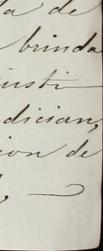 la de
brinda
justi
dician,
ion de